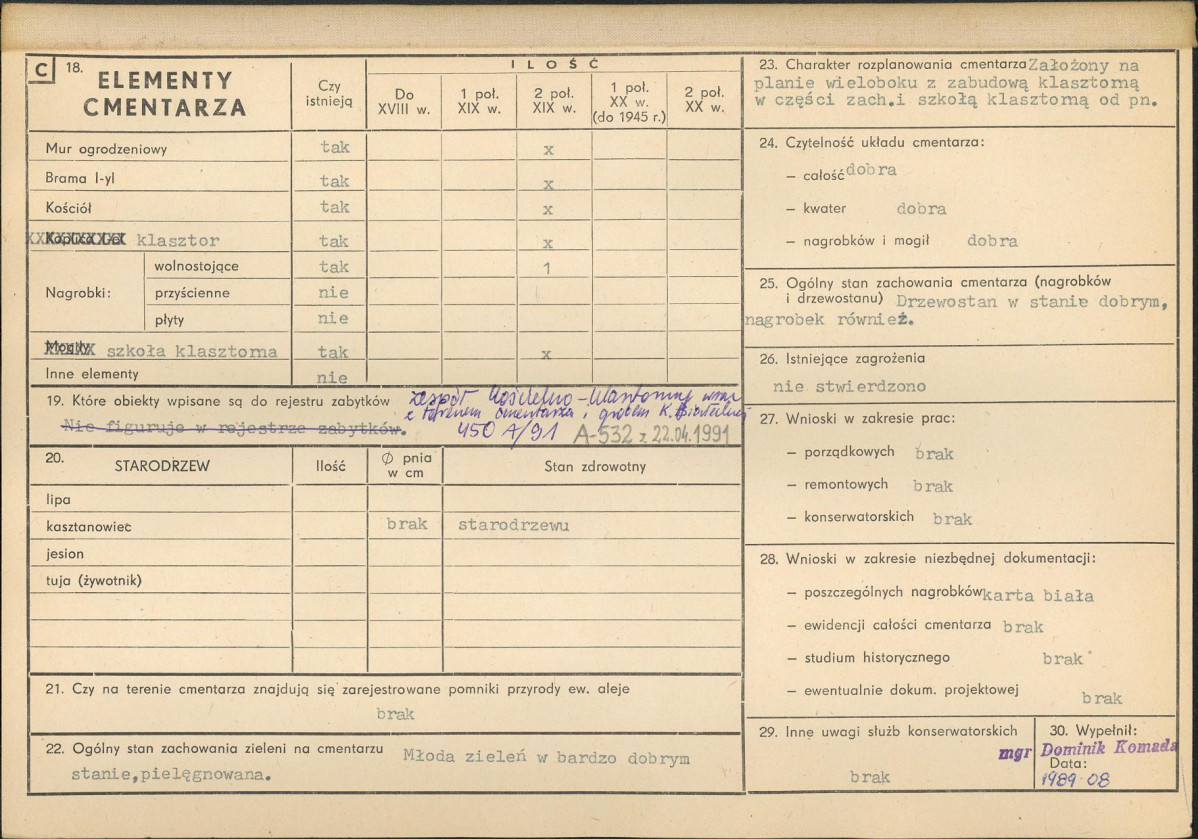 C 18. ELEMENTY CMENTARZA
Czy istnieją
ILOŚĆ
Do XVIII w.
1 poł. XIX w.
2 poł. XIX w.
1 poł. XX w. (do 1945 r.)
2 poł. XX w.
Mur ogrodzeniowy tak x
Brama I-yl tak x
Kościół tak x
klasztor tak x
Nagrobki: wolnostojące tak 1
przyścienne nie
płyty nie
Mogiły XXXXX szkoła klasztorna tak x
Inne elementy nie
19. Które obiekty wpisane są do rejestru zabytków zespół kościelno-klasztorny wraz
z terenem cmentarza i grobem K.
Nie figuruje w rejestrze zabytków. 450 A/91 A-532 z 22.04.1991
20. STARODRZEW Ilość Ø pnia w cm Stan zdrowotny
lipa
kasztanowiec brak starodrzewu
jesion
tuja (żywotnik)
21. Czy na terenie cmentarza znajdują się zarejestrowane pomniki przyrody ew. aleje
brak
22. Ogólny stan zachowania zieleni na cmentarzu Młoda zieleń w bardzo dobrym
stanie,pielęgnowana.
23. Charakter rozplanowania cmentarza Założony na
planie wieloboku z zabudową klasztorną
w części zach.i szkołą klasztorną od pn.
24. Czytelność układu cmentarza:
– całość dobra
– kwater dobra
– nagrobków i mogił dobra
25. Ogólny stan zachowania cmentarza (nagrobków
i drzewostanu) Drzewostan w stanie dobrym,
nagrobek również.
26. Istniejące zagrożenia
nie stwierdzono
27. Wnioski w zakresie prac:
– porządkowych brak
– remontowych brak
– konserwatorskich brak
28. Wnioski w zakresie niezbędnej dokumentacji:
– poszczególnych nagrobków karta biała
– ewidencji całości cmentarza brak
– studium historycznego brak
– ewentualnie dokum. projektowej brak
29. Inne uwagi służb konserwatorskich
brak
30. Wypełnił:
mgr Dominik Komada
Data:
1989-08